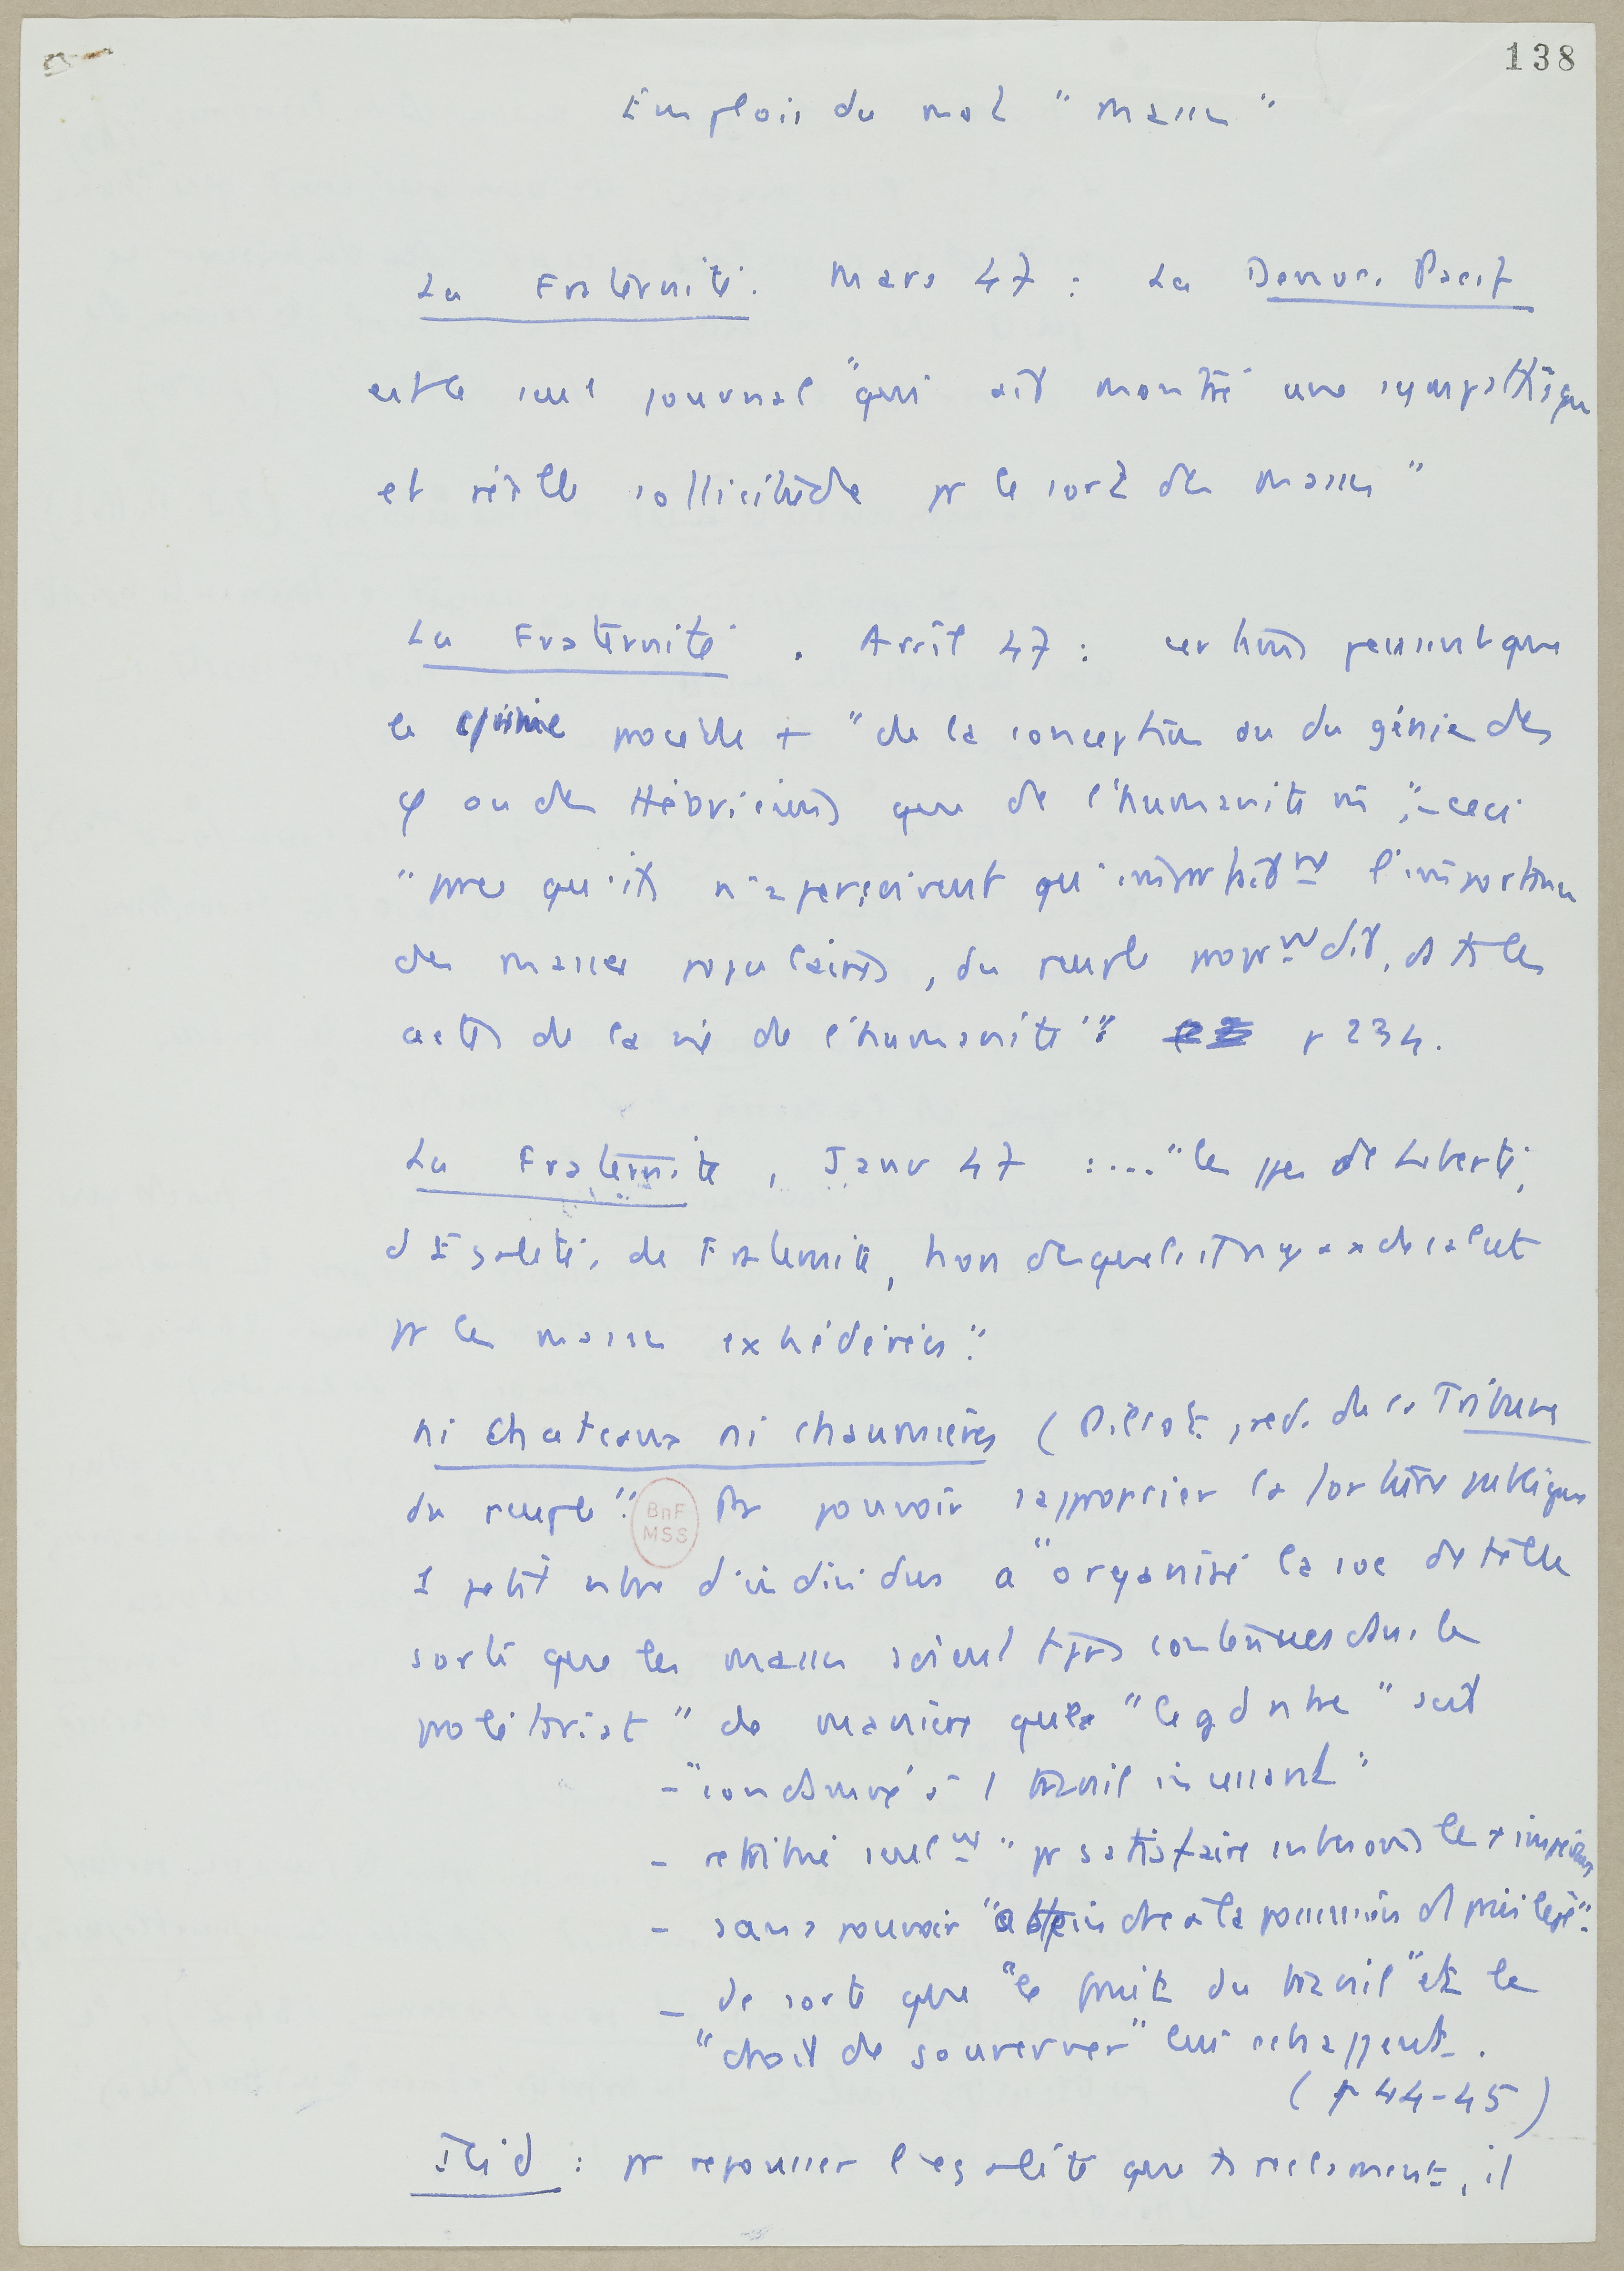 138
Emplois du mot "masse"
La Fraternité. Mars 47 : La Democ. Pacif
est le seul journal "qui ait montré une sympathique
et réelle sollicitude pr le sort des masses"
La Fraternité. Avril 47 : certains pensent que
le procède + "de la conception ou du génie des
φ ou des théoriciens que de l'humanité m̂", - ceci
"prce qu'ils n'aperçoivent qu'imparfaitnt l'importance
des masses populaires, du peuple proprnt dit, ds ts les
actes de la vie de l'humanité". p 234.
La Fraternité, Janv 47 : ... "les ppes de Liberté,
d'Egalité, de Fraternité, hors desquels il n'y a de salut
pr les masses exhédérées".
Ni chateaux ni chaumières (Pillot, red. de la Tribune
du peuple". Pr pouvoir s'approprier la fortune publique
1 petit nbre d'individus a "organisé la soc de telle
sorte que les masses soient tjrs contenues ds le
prolétariat" de manière que "le gd nbre" soit
- "condamné à 1 travail incessant"
- rétribué seulnt "pr satisfaire besoins les + impérieux
- sans pouvoir "atteindre à la possession ds privilèges".
- de sorte que "le fruit du travail" et le
"droit de gouverner" lui échappent.
(p 44-45)
Ibid : pr repousser l'égalité que ts réclament, il
BnF
MSS